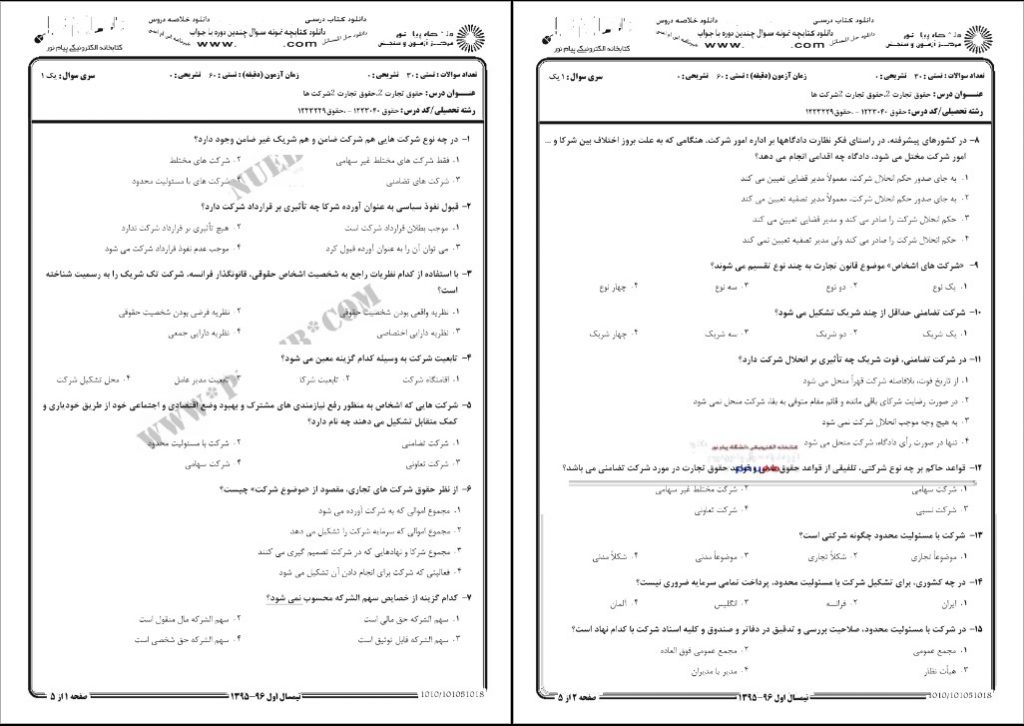 دانلود کتاب درسی
دانلود خلاصه دروس
دانلود کتابچه نمونه سوال چندین دوره با جواب
www. .com
کتابخانه الکترونیکی پیام نور
مرکز آزمون و سنجش
تعداد سوالات : تستی : ۳۰ تشریحی : ۰
زمان آزمون (دقیقه) : تستی : ۶۰ تشریحی : ۰
سری سوال : یک ۱
عنـــوان درس : حقوق تجارت 2،حقوق تجارت 2شرکت ها
رشته تحصیلی/کد درس : حقوق ۱۲۲۳۰۴۰ - ،حقوق۱۲۲۳۲۲۹
۱- در چه نوع شرکت هایی هم شرکت ضامن و هم شریک غیر ضامن وجود دارد؟
۱. فقط شرکت های مختلط غیر سهامی
۲. شرکت های مختلط
۳. شرکت های تضامنی
۴. شرکت های با مسئولیت محدود
۲- قبول نفوذ سیاسی به عنوان آورده شرکا چه تأثیری بر قرارداد شرکت دارد؟
۱. موجب بطلان قرارداد شرکت است
۲. هیچ تأثیری بر قرارداد شرکت ندارد
۳. می توان آن را به عنوان آورده قبول کرد
۴. موجب عدم نفوذ قرارداد شرکت می شود
۳- با استفاده از کدام نظریات راجع به شخصیت اشخاص حقوقی، قانونگذار فرانسه، شرکت تک شریک را به رسمیت شناخته
است؟
۱. نظریه واقعی بودن شخصیت حقوقی
۲. نظریه فرضی بودن شخصیت حقوقی
۳. نظریه دارایی اختصاصی
۴. نظریه دارایی جمعی
۴- تابعیت شرکت به وسیله کدام گزینه معین می شود؟
۱. اقامتگاه شرکت
۲. تابعیت شرکا
۳. تابعیت مدیر عامل
۴. محل تشکیل شرکت
۵- شرکت هایی که اشخاص به منظور رفع نیازمندی های مشترک و بهبود وضع اقتصادی و اجتماعی خود از طریق خودیاری و
کمک متقابل تشکیل می دهند چه نام دارد؟
۱. شرکت تضامنی
۲. شرکت با مسئولیت محدود
۳. شرکت تعاونی
۴. شرکت سهامی
۶- از نظر حقوق شرکت های تجاری، مقصود از «موضوع شرکت» چیست؟
۱. مجموع اموالی که به شرکت آورده می شود
۲. مجموع اموالی که سرمایه شرکت را تشکیل می دهد
۳. مجموع شرکا و نهادهایی که در شرکت تصمیم گیری می کنند
۴. فعالیتی که شرکت برای انجام دادن آن تشکیل می شود
۷- کدام گزینه از خصایص سهم الشرکه محسوب نمی شود؟
۱. سهم الشرکه حق مالی است
۲. سهم الشرکه مال منقول است
۳. سهم الشرکه قابل توثیق است
۴. سهم الشرکه حق شخصی است
صفحه ۱ از ۵
نیمسال اول ۹۶-۱۳۹۵
1010/101051018
دانلود کتاب درسی
دانلود خلاصه دروس
دانلود کتابچه نمونه سوال چندین دوره با جواب
www. .com
کتابخانه الکترونیکی پیام نور
مرکز آزمون و سنجش
تعداد سوالات : تستی : ۳۰ تشریحی : ۰
زمان آزمون (دقیقه) : تستی : ۶۰ تشریحی : ۰
سری سوال : ۱ یک
عنـــوان درس : حقوق تجارت 2،حقوق تجارت 2شرکت ها
رشته تحصیلی/کد درس : حقوق ۱۲۲۳۰۴۰ - ،حقوق۱۲۲۳۲۲۹
۸- در کشورهای پیشرفته، در راستای فکر نظارت دادگاهها بر اداره امور شرکت، هنگامی که به علت بروز اختلاف بین شرکا و ...
امور شرکت مختل می شود، دادگاه چه اقدامی انجام می دهد؟
۱. به جای صدور حکم انحلال شرکت، معمولاً مدیر قضایی تعیین می کند
۲. به جای صدور حکم انحلال شرکت، معمولاً مدیر تصفیه تعیین می کند
۳. حکم انحلال شرکت را صادر می کند و مدیر قضایی تعیین می کند
۴. حکم انحلال شرکت را صادر می کند ولی مدیر تصفیه تعیین نمی کند
۹- «شرکت های اشخاص» موضوع قانون تجارت به چند نوع تقسیم می شوند؟
۱. یک نوع
۲. دو نوع
۳. سه نوع
۴. چهار نوع
۱۰- شرکت تضامنی حداقل از چند شریک تشکیل می شود؟
۱. یک شریک
۲. دو شریک
۳. سه شریک
۴. چهار شریک
۱۱- در شرکت تضامنی، فوت شریک چه تأثیری بر انحلال شرکت دارد؟
۱. از تاریخ فوت، بلافاصله شرکت قهراً منحل می شود
۲. در صورت رضایت شرکای باقی مانده و قائم مقام متوفی به بقا، شرکت منحل نمی شود
۳. به هیچ وجه موجب انحلال شرکت نمی شود
۴. تنها در صورت رأی دادگاه، شرکت منحل می شود
کتابخانه الکترونیکی دانشگاه پیام نور
۱۲- قواعد حاکم بر چه نوع شرکتی، تلفیقی از قواعد حقوق و قواعد حقوق تجارت در مورد شرکت تضامنی می باشد؟
۱. شرکت سهامی
۲. شرکت مختلط غیر سهامی
۳. شرکت نسبی
۴. شرکت تعاونی
۱۳- شرکت با مسئولیت محدود چگونه شرکتی است؟
۱. موضوعاً تجاری
۲. شکلاً تجاری
۳. موضوعاً مدنی
۴. شکلاً مدنی
۱۴- در چه کشوری، برای تشکیل شرکت با مسئولیت محدود، پرداخت تمامی سرمایه ضروری نیست؟
۱. ایران
۲. فرانسه
۳. انگلیس
۴. آلمان
۱۵- در شرکت با مسئولیت محدود، صلاحیت بررسی و تدقیق در دفاتر و صندوق و کلیه اسناد شرکت با کدام نهاد است؟
۱. مجمع عمومی
۲. مجمع عمومی فوق العاده
۳. هیأت نظار
۴. مدیر یا مدیران
صفحه ۲ از ۵
نیمسال اول ۹۶-۱۳۹۵
1010/101051018